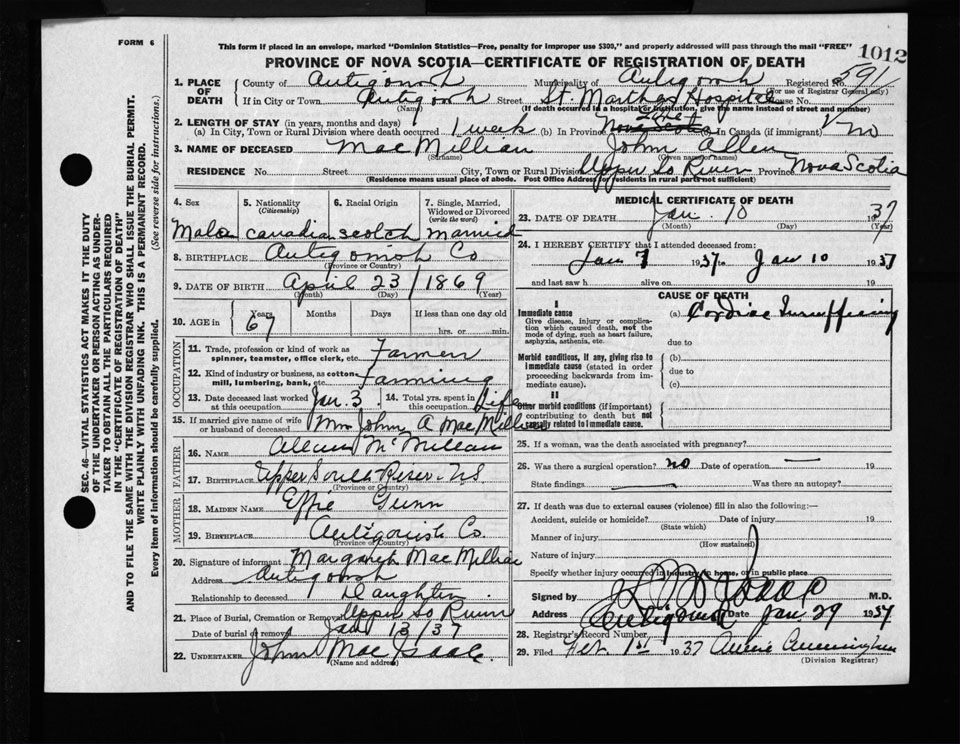 FORM 6
This form if placed in an envelope, marked "Dominion Statistics—Free, penalty for improper use $300," and properly addressed will pass through the mail "FREE"
1012
PROVINCE OF NOVA SCOTIA—CERTIFICATE OF REGISTRATION OF DEATH
1. PLACE OF DEATH County of Antigonish Municipality of Antigonish Registered No. 591
(For use of Registrar General only)
If in City or Town Antigonish Street St. Marthas Hospital House No.
(Name) (If death occurred in a hospital or institution, give the name instead of street and number)
2. LENGTH OF STAY (in years, months and days)
(a) In City, Town or Rural Division where death occurred 1 week (b) In Province Life Nova Scotia (c) In Canada (if immigrant) no
3. NAME OF DECEASED MacMillian John Allen
(Surname) (Given name or names)
RESIDENCE No. Street City, Town or Rural Division Upper So River Province Nova Scotia
(Residence means usual place of abode. Post Office Address for residents in rural parts not sufficient)
4. Sex 5. Nationality (Citizenship) 6. Racial Origin 7. Single, Married, Widowed or Divorced (write the word)
Male Canadian Scotch Married
8. BIRTHPLACE Antigonish Co
(Province or Country)
9. DATE OF BIRTH April 23 / 1869
(Month) (Day) (Year)
10. AGE in Years Months Days If less than one day old
67 hrs. or min.
OCCUPATION
11. Trade, profession or kind of work as spinner, teamster, office clerk, etc. Farmer
12. Kind of industry or business, as cotton mill, lumbering, bank, etc. Farming
13. Date deceased last worked at this occupation Jan. 3. 14. Total yrs. spent in this occupation Life
15. If married give name of wife or husband of deceased Mrs John A MacMillian
FATHER
16. NAME Allan McMillan
17. BIRTHPLACE Upper South River NS
(Province or Country)
MOTHER
18. MAIDEN NAME Effie Gunn
19. BIRTHPLACE Antigonish Co.
(Province or Country)
20. Signature of informant Margaret MacMillian
Address Antigonish
Relationship to deceased Daughter
21. Place of Burial, Cremation or Removal Upper So River
Date of burial or removal Jan 13/37
22. UNDERTAKER John MacIsaac
(Name and address)
MEDICAL CERTIFICATE OF DEATH
23. DATE OF DEATH Jan. 10 1937
(Month) (Day) (Year)
24. I HEREBY CERTIFY that I attended deceased from:
Jan 7 1937 to Jan 10 1937
and last saw h alive on 19
CAUSE OF DEATH
I
Immediate cause
Give disease, injury or complication which caused death, not the mode of dying, such as heart failure, asphyxia, asthenia, etc.
(a) Cardiac
due to
Morbid conditions, if any, giving rise to immediate cause (stated in order proceeding backwards from immediate cause).
(b)
due to
(c)
II
Other morbid conditions (if important) contributing to death but not causally related to immediate cause.
25. If a woman, was the death associated with pregnancy?
26. Was there a surgical operation? no Date of operation — 19
State findings — Was there an autopsy?
27. If death was due to external causes (violence) fill in also the following:—
Accident, suicide or homicide? Date of injury 19
(State which)
Manner of injury
(How sustained)
Nature of injury
Specify whether injury occurred in industry, in home, or in public place
Signed by M.D.
Address Antigonish Date Jan. 29 1937
28. Registrar's Record Number
29. Filed Feb. 1st 1937 Annie Cunningham
(Division Registrar)
SEC. 46—VITAL STATISTICS ACT MAKES IT THE DUTY
OF THE UNDERTAKER OR PERSON ACTING AS UNDERTAKER TO OBTAIN ALL THE PARTICULARS REQUIRED
IN THE "CERTIFICATE OF REGISTRATION OF DEATH"
AND TO FILE THE SAME WITH THE DIVISION REGISTRAR WHO SHALL ISSUE THE BURIAL PERMIT.
WRITE PLAINLY WITH UNFADING INK. THIS IS A PERMANENT RECORD.
Every item of information should be carefully supplied. (See reverse side for instructions.)